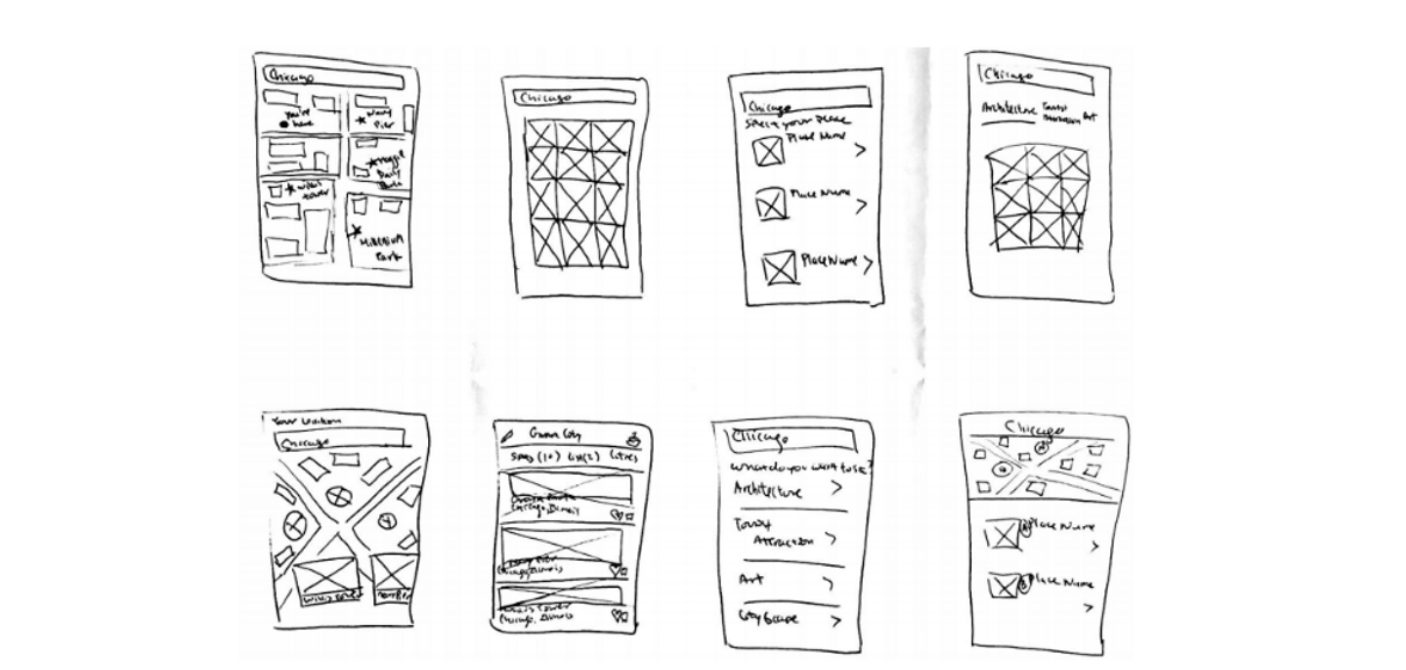 Chicago
You're
here
Navy
Pier
Maggie
Daily
Willis
Tower
Millenium
Park
Chicago
Chicago
Select your place
Place Name
Place Name
Place Name
Chicago
Architecture
Tourist
Attraction
Art
Your Location
Chicago
Willis Tower
Spots (10) List(2) Cities
Chicago, Illinois
Navy Pier
Chicago, Illinois
Willis Tower
Chicago, Illinois
Chicago
What do you want to see?
Architecture
Tourist
Attraction
Art
City Scape
Chicago
Place Name
Place Name